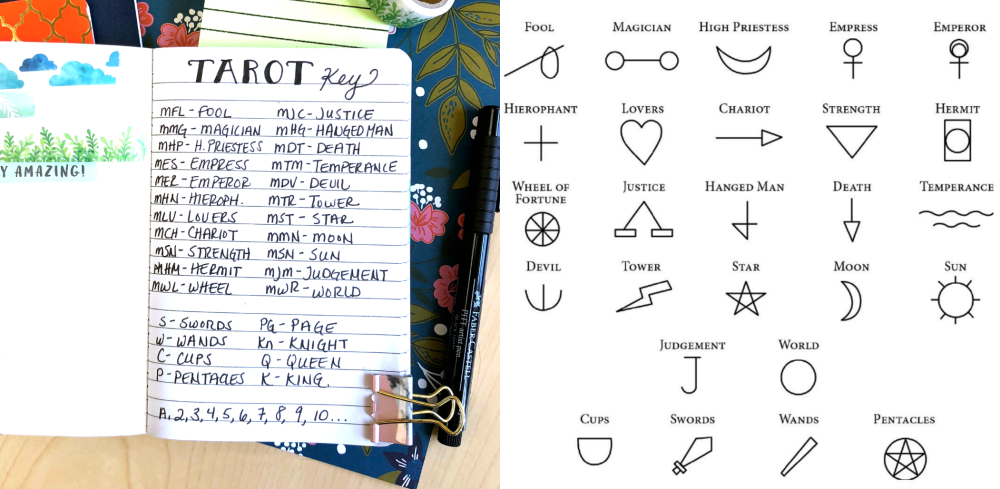 Y AMAZING!
TAROT Key
MFL - FOOL MJC - JUSTICE
MMG - MAGICIAN MHG - HANGED MAN
MHP - H. PRIESTESS MDT - DEATH
MES - EMPRESS MTM - TEMPERANCE
MER - EMPEROR MDV - DEVIL
MHN - HIEROPH. MTR - TOWER
MLV - LOVERS MST - STAR
MCH - CHARIOT MMN - MOON
MSN - STRENGTH MSN - SUN
MHM - HERMIT MJM - JUDGEMENT
MWL - WHEEL MWR - WORLD
S - SWORDS PG - PAGE
W - WANDS Kn - KNIGHT
C - CUPS Q - QUEEN
P - PENTACLES K - KING
A, 2, 3, 4, 5, 6, 7, 8, 9, 10...
FABER-CASTELL
PITT artist pen
FOOL MAGICIAN HIGH PRIESTESS EMPRESS EMPEROR
HIEROPHANT LOVERS CHARIOT STRENGTH HERMIT
WHEEL OF
FORTUNE JUSTICE HANGED MAN DEATH TEMPERANCE
DEVIL TOWER STAR MOON SUN
JUDGEMENT WORLD
CUPS SWORDS WANDS PENTACLES